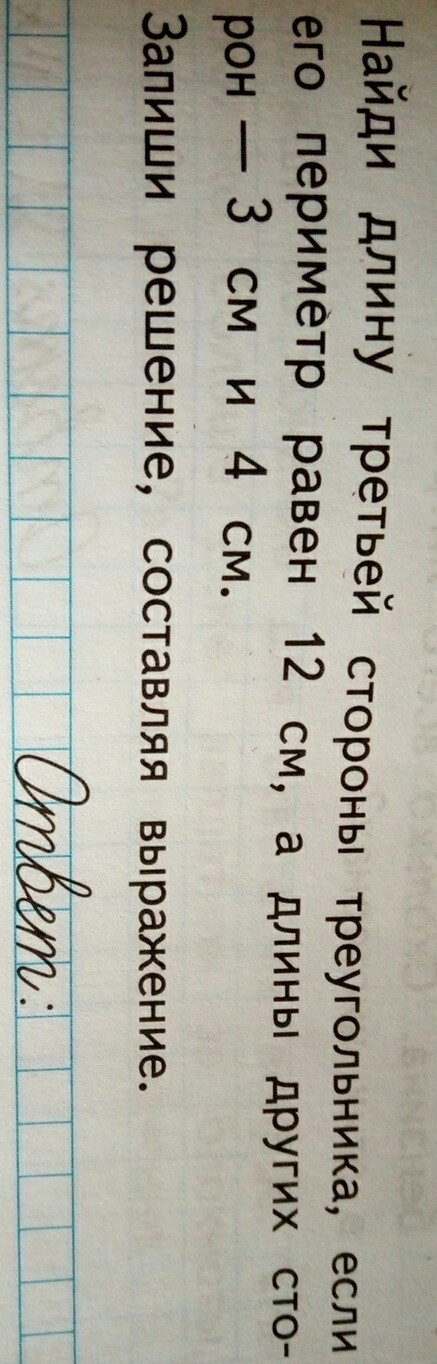 Найди длину третьей стороны треугольника, если
его периметр равен 12 см, а длины других сто-
рон — 3 см и 4 см.
Запиши решение, составляя выражение.
Ответ: